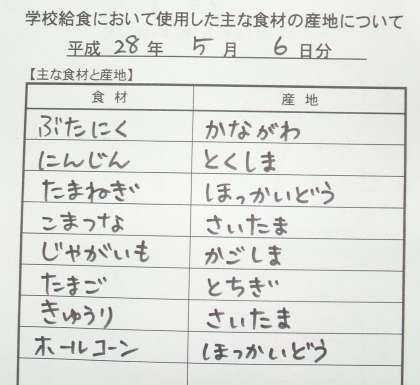 学校給食において使用した主な食材の産地について
平成 28 年 5 月 6 日分
【主な食材と産地】
食材 産地
ぶたにく かながわ
にんじん とくしま
たまねぎ ほっかいどう
こまつな さいたま
じゃがいも かごしま
たまご とちぎ
きゅうり さいたま
ホールコーン ほっかいどう